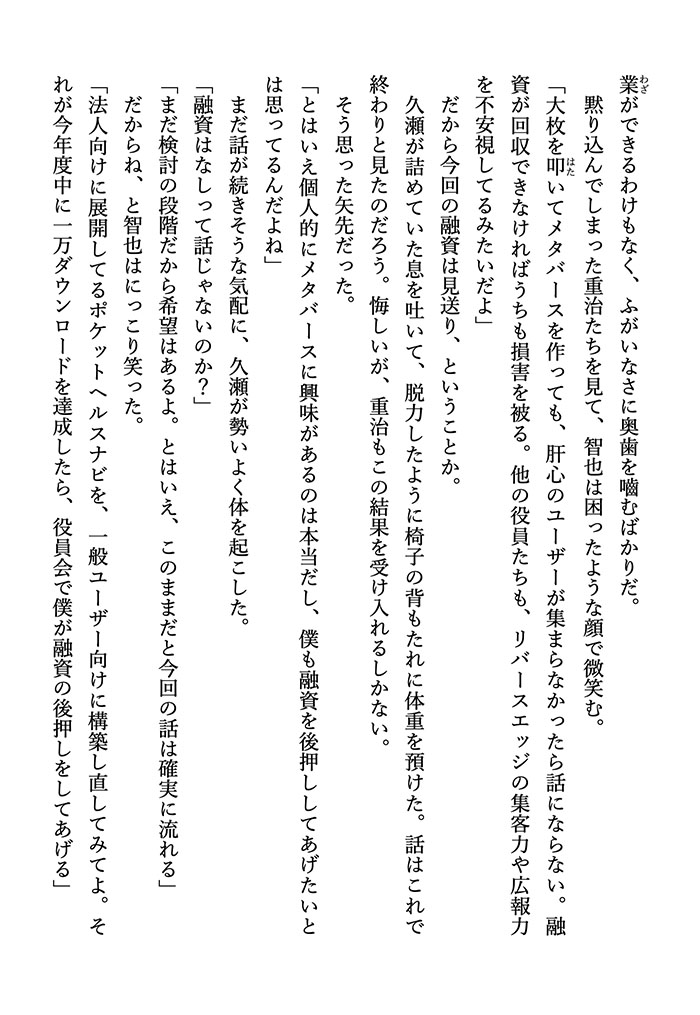 業わざができるわけもなく、ふがいなさに奥歯を嚙むばかりだ。
黙り込んでしまった重治たちを見て、智也は困ったような顔で微笑む。
「大枚を叩はたいてメタバースを作っても、肝心のユーザーが集まらなかったら話にならない。融
資が回収できなければうちも損害を被る。他の役員たちも、リバースエッジの集客力や広報力
を不安視してるみたいだよ」
だから今回の融資は見送り、ということか。
久瀬が詰めていた息を吐いて、脱力したように椅子の背もたれに体重を預けた。話はこれで
終わりと見たのだろう。悔しいが、重治もこの結果を受け入れるしかない。
そう思った矢先だった。
「とはいえ個人的にメタバースに興味があるのは本当だし、僕も融資を後押ししてあげたいと
は思ってるんだよね」
まだ話が続きそうな気配に、久瀬が勢いよく体を起こした。
「融資はなしって話じゃないのか？」
「まだ検討の段階だから希望はあるよ。とはいえ、このままだと今回の話は確実に流れる」
だからね、と智也はにっこり笑った。
「法人向けに展開してるポケットヘルスナビを、一般ユーザー向けに構築し直してみてよ。そ
れが今年度中に一万ダウンロードを達成したら、役員会で僕が融資の後押しをしてあげる」